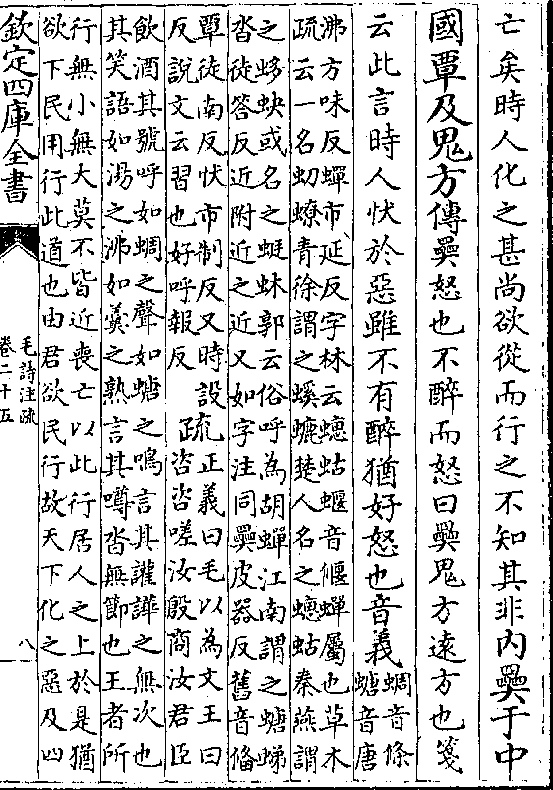 亡矣時人化之甚尚欲從而行之不知其非内奰于中
國覃及鬼方傳奰怒也不醉而怒曰奰鬼方遠方也箋
云此言時人忕於惡雖不有醉猶好怒也音義蜩音條
螗音唐
沸方味反蟬市延反字林云蟪蛄蝘音偃蟬屬也草木
疏云一名虭蟟青徐謂之螇螰楚人名之蟪蛄秦燕謂
之蛥蚗或名之蜓蚞郭云俗呼為胡蟬江南謂之螗
沓徒答反近附近之近又如字注同奰皮器反舊音備
覃徒南反忕市制反又時設
反說文云習也好呼報反
疏正義曰毛以為文王曰
咨咨嗟汝殷商汝君臣
飲酒其號呼如蜩之聲如螗之鳴言其讙譁之無次也
其笑語如湯之沸如羹之熟言其噂沓無節也王者所
行無小無大莫不皆近喪亡以此行居人之上於是猶
欲下民用行此道也由君欲民行故天下化之惡及四
欽定四庫全書
毛詩注疏
卷二十五
八